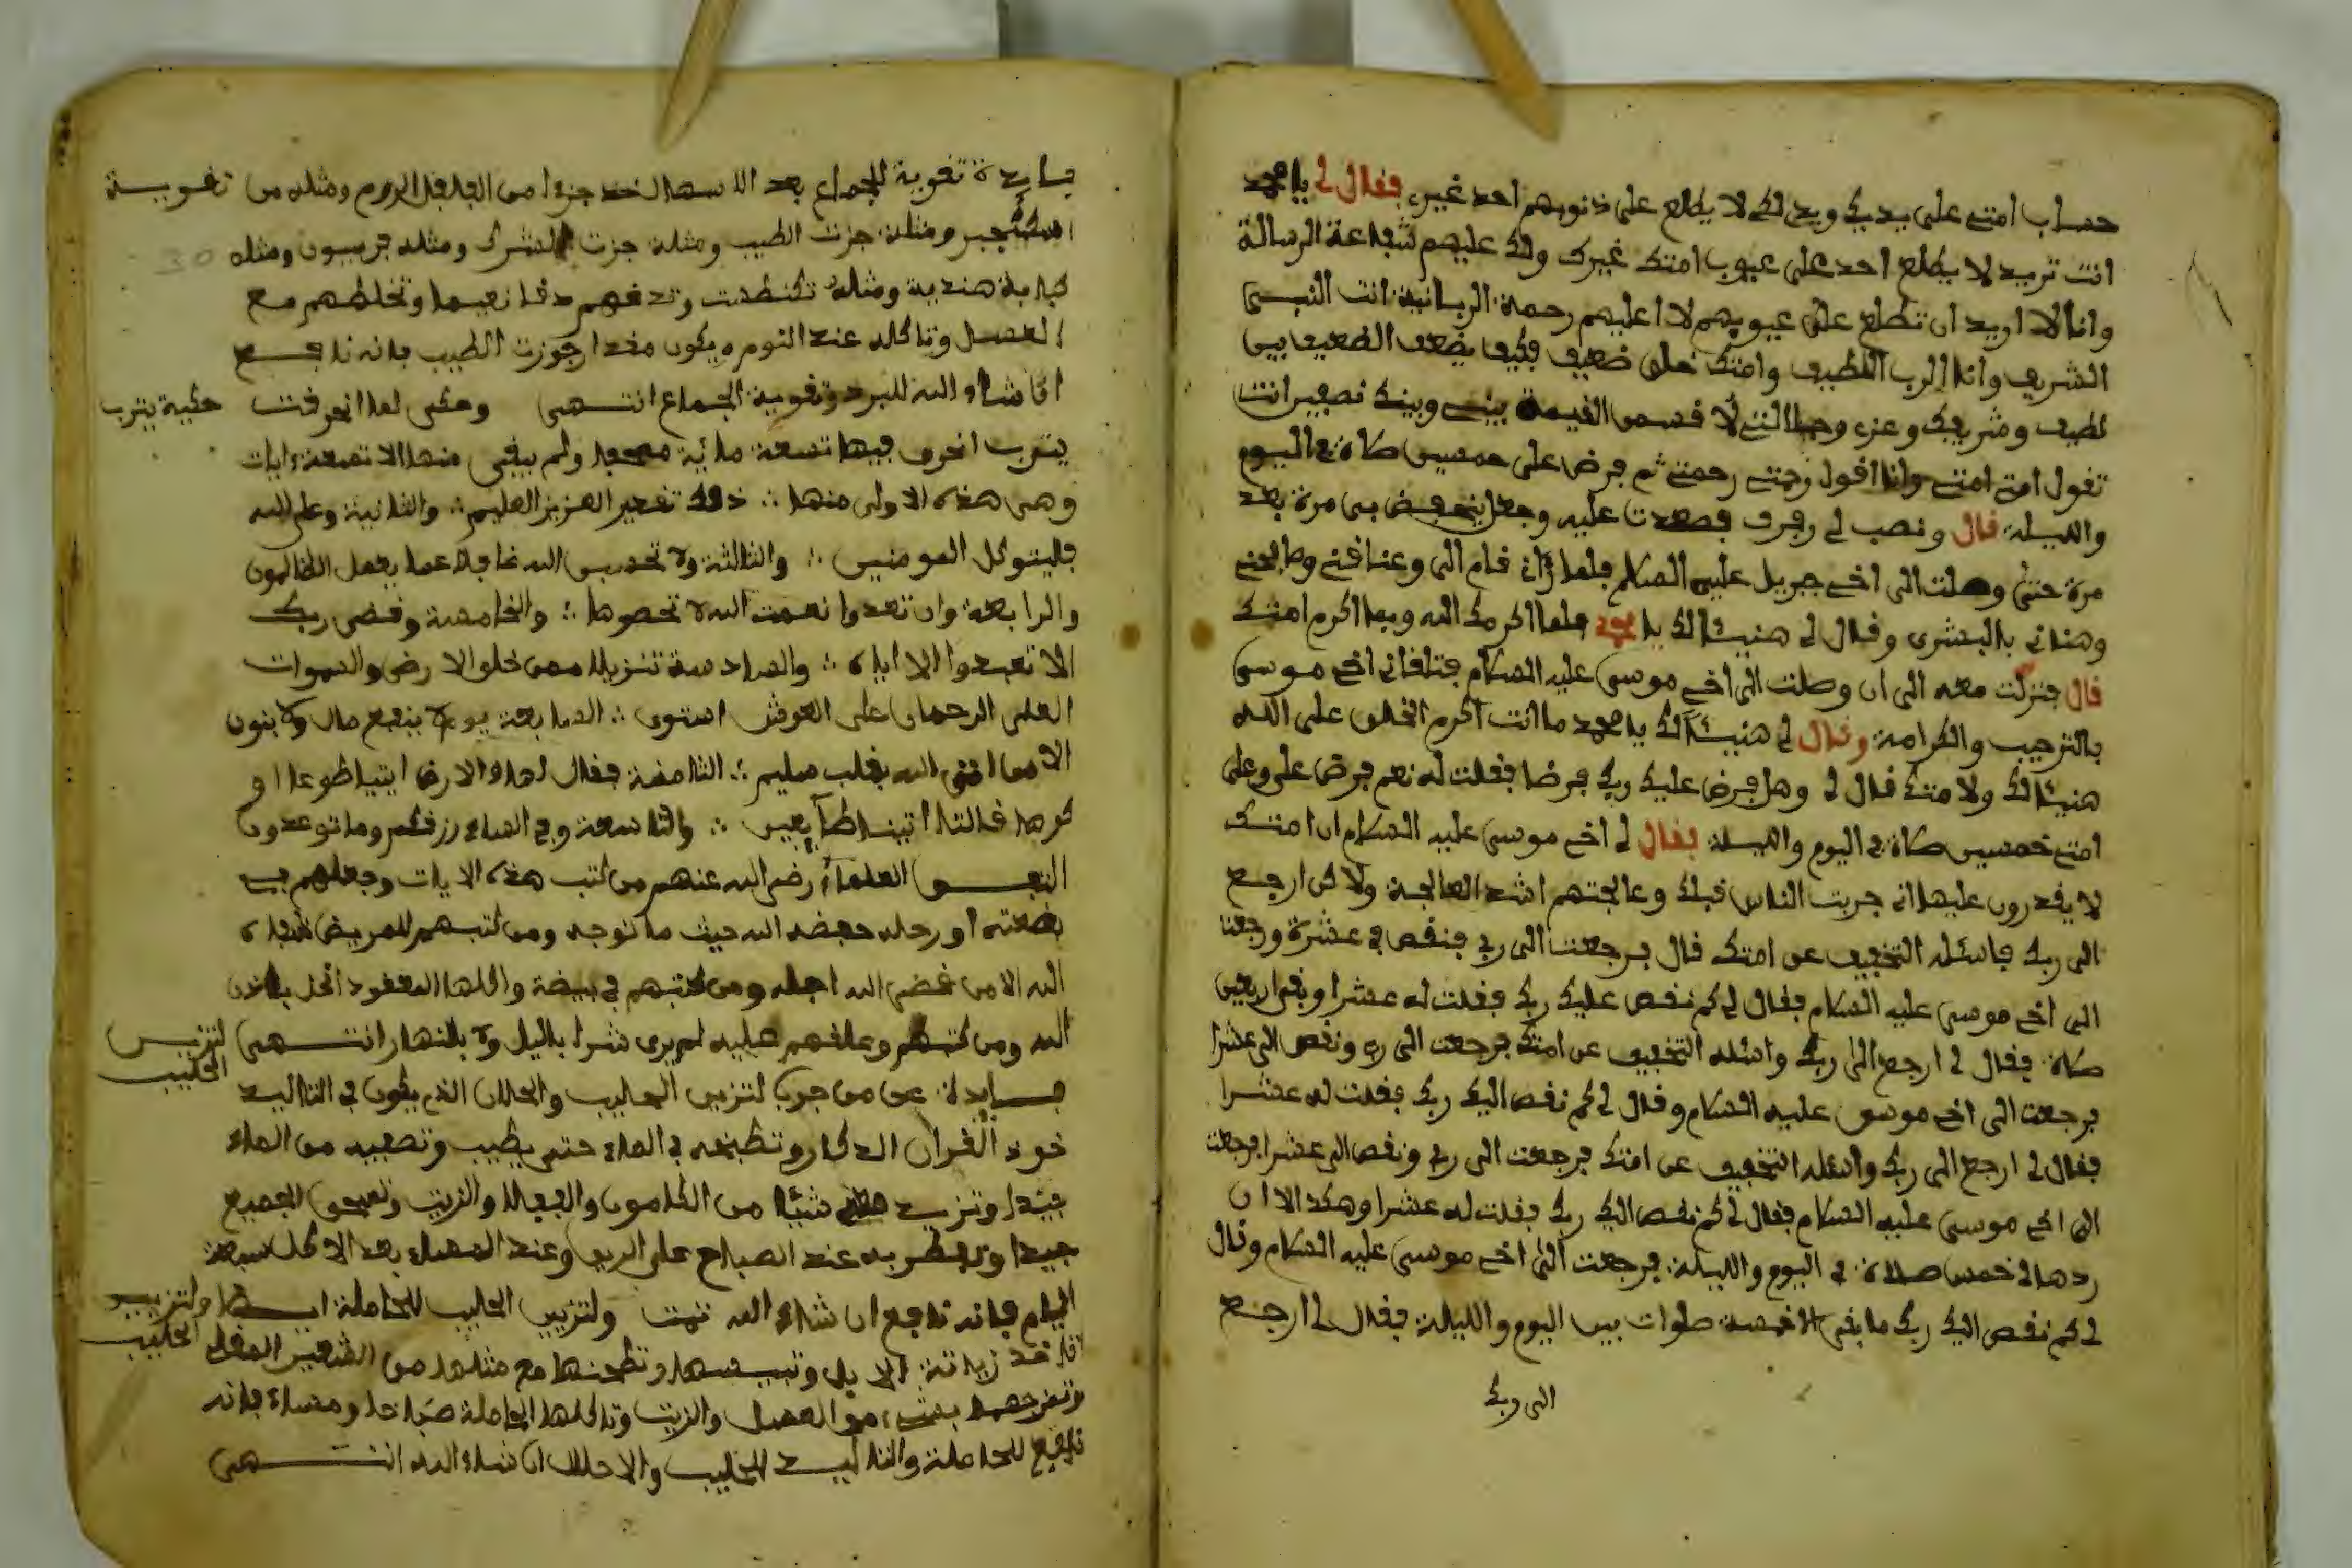 حساب امتي على يديك ويدي لكي لا يطلع على ذنوبهم احد غيري فقال لي يا محمد
انت تريد لا يطلع احد على عيوب امتك غيرك ولك عليهم شفاعة الرسالة
وانا لا اريد ان تطلع على عيوبهم لا اعليهم رحمة الربانية انت النبي
الشريف وانا الرب اللطيف وامتك خلق ضعيف فكيف يضعف الضعيف بين
لطيف وشريف وعزتي وجلالتي لا قسمن القيمة بيني وبينك نصفين انت
تقول امتي امتي وانا اقول رحمتي رحمتي ثم فرض على خمسين صلاة في اليوم
والليلة قال ونصب لي رفرف فصعدت عليه وجعل ينخفض بي مرة بعد
مرة حتى وصلت الى اخي جبريل عليه السلام فلما رءاني قام الى وعنافني وصافحني
وهناني بالبشرى وقال لي هنيئا لك يا محمد فلما اكرمك الله وبما اكرم امتك
قال فنزلت معه الى ان وصلت الى اخي موسى عليه السلام فتلقاني اخي موسى
بالترحيب والكرامة وقال لي هنيئا لك يا محمد ما انت اكرم الخلق على الله
هنيئا لك ولامتك قال لي وهل فرض عليك ربك فرضا فقلت له نعم فرض علي وعلى
امتي خمسين صلاة في اليوم والليلة فقال لي اخي موسى عليه السلام ان امتك
لا يقدرون عليها اني جربت الناس قبلك وعالجتهم اشد المعالجة ولاكن ارجع
الى ربك فاسئله التخفيف عن امتك قال فرجعت الى ربي فنقص لي عشرة ورجعت
الى اخي موسى عليه السلام فقال لي كم نقص عليك ربك فقلت له عشرا وبقى اربعين
صلاة فقال لي ارجع الى ربك واسئله التخفيف عن امتك فرجعت الى ربي ونقص الى عشرا
فرجعت الى اخي موسى عليه السلام وقال لي كم نقص اليك ربك فقلت له عشرا
فقال لي ارجع الى ربك واسئله التخفيف عن امتك فرجعت الى ربي ونقص الى عشرا فرجعت
الى اخي موسى عليه السلام فقال لي كم نقص اليك ربك فقلت له عشرا وهكذا الا ان
ردها لي خمس صلاة في اليوم والليلة فرجعت الى اخي موسى عليه السلام وقال
لي كم نقص اليك ربك ما بقى الا خمسة صلوات بين اليوم والليلة فقال لي ارجع
الى ربك
فايدة تقوية للجماع بعد الاسهال خذ جزءا من الفلفل ومثله من
تقوية
ومثله جزت الطيب ومثله جزت الشرك ومثله فربيون ومثله
30
كبابة هندية ومثله وتدقهم دقا نعيما وتخلطهم مع
العسل وتاكله عند النوم ويكون مقدار جوزت الطيب فانه نافع
ان شاء الله للبرد وتقوية الجماع انتهى وحكى لما انحرقت
حكية يترب
يترب انحرق فيها تسعة مائة مصحف ولم يبقى منها الا تسعة ءايات
وهى هذه الاولى منها ذلك تقدير العزيز العليم والثانية وعلى الله
فليتوكل المومنين والثالثة ولا تحسبن الله غافلا عما يعمل الظالمون
والرابعة وان تعدوا نعمت الله لا تحصوها والخامسة وقضى ربك
الا تعبدوا الا اياه والسادسة تنزيلا ممن خلق الارض والسموات
العلى الرحمان على العرش استوى السابعة يوم لا ينفع مال ولا بنون
الا من اتى الله بقلب سليم الثامنة فقال لها وللارض ايتيا طوعا او
كرها قالتا اتينا طآيعين والتاسعة وفي السماء رزقكم وما توعدون
العلماء رضي الله عنهم من كتب هذه الايات وجعلهم في
بضعته او رحله حفضه الله حيث ما توجه ومن كتبهم للمريض شفاه
الله الا من قضى الله اجله ومن كتبهم في بيضة واكلها المعقود انحل باذن
الله ومن كتبهم وعلقهم عليه لم يرى شرا باليل ولا بالنهار انتهى
لتزيين
الحليب
فايدة عن من جرب لتزيين الحليب والحلاب الذي يكون في الثاليد
خوذ الدكار وتطبخه في الماء حتى يطيب وتصفيه من الماء
جيدا وتزيد شيئا من الكامون والزيت وتعجن الجميع
جيدا وتفطر به عند الصباح على الريق وعند المساء بعد الاكل سبعة
ايام فانه نافع ان شاء الله تمت ولتزيين الحليب للحاملة ايضا
ولتزييد
الحليب
الابل وتيبسها وتطحنها مع مثلها من الشعير المقلي
بشيء من العسل والزيت وتاكلها الحاملة صباحا ومساء فانه
نافع للحاملة للحليب والاحلال ان شاء الله انتهى